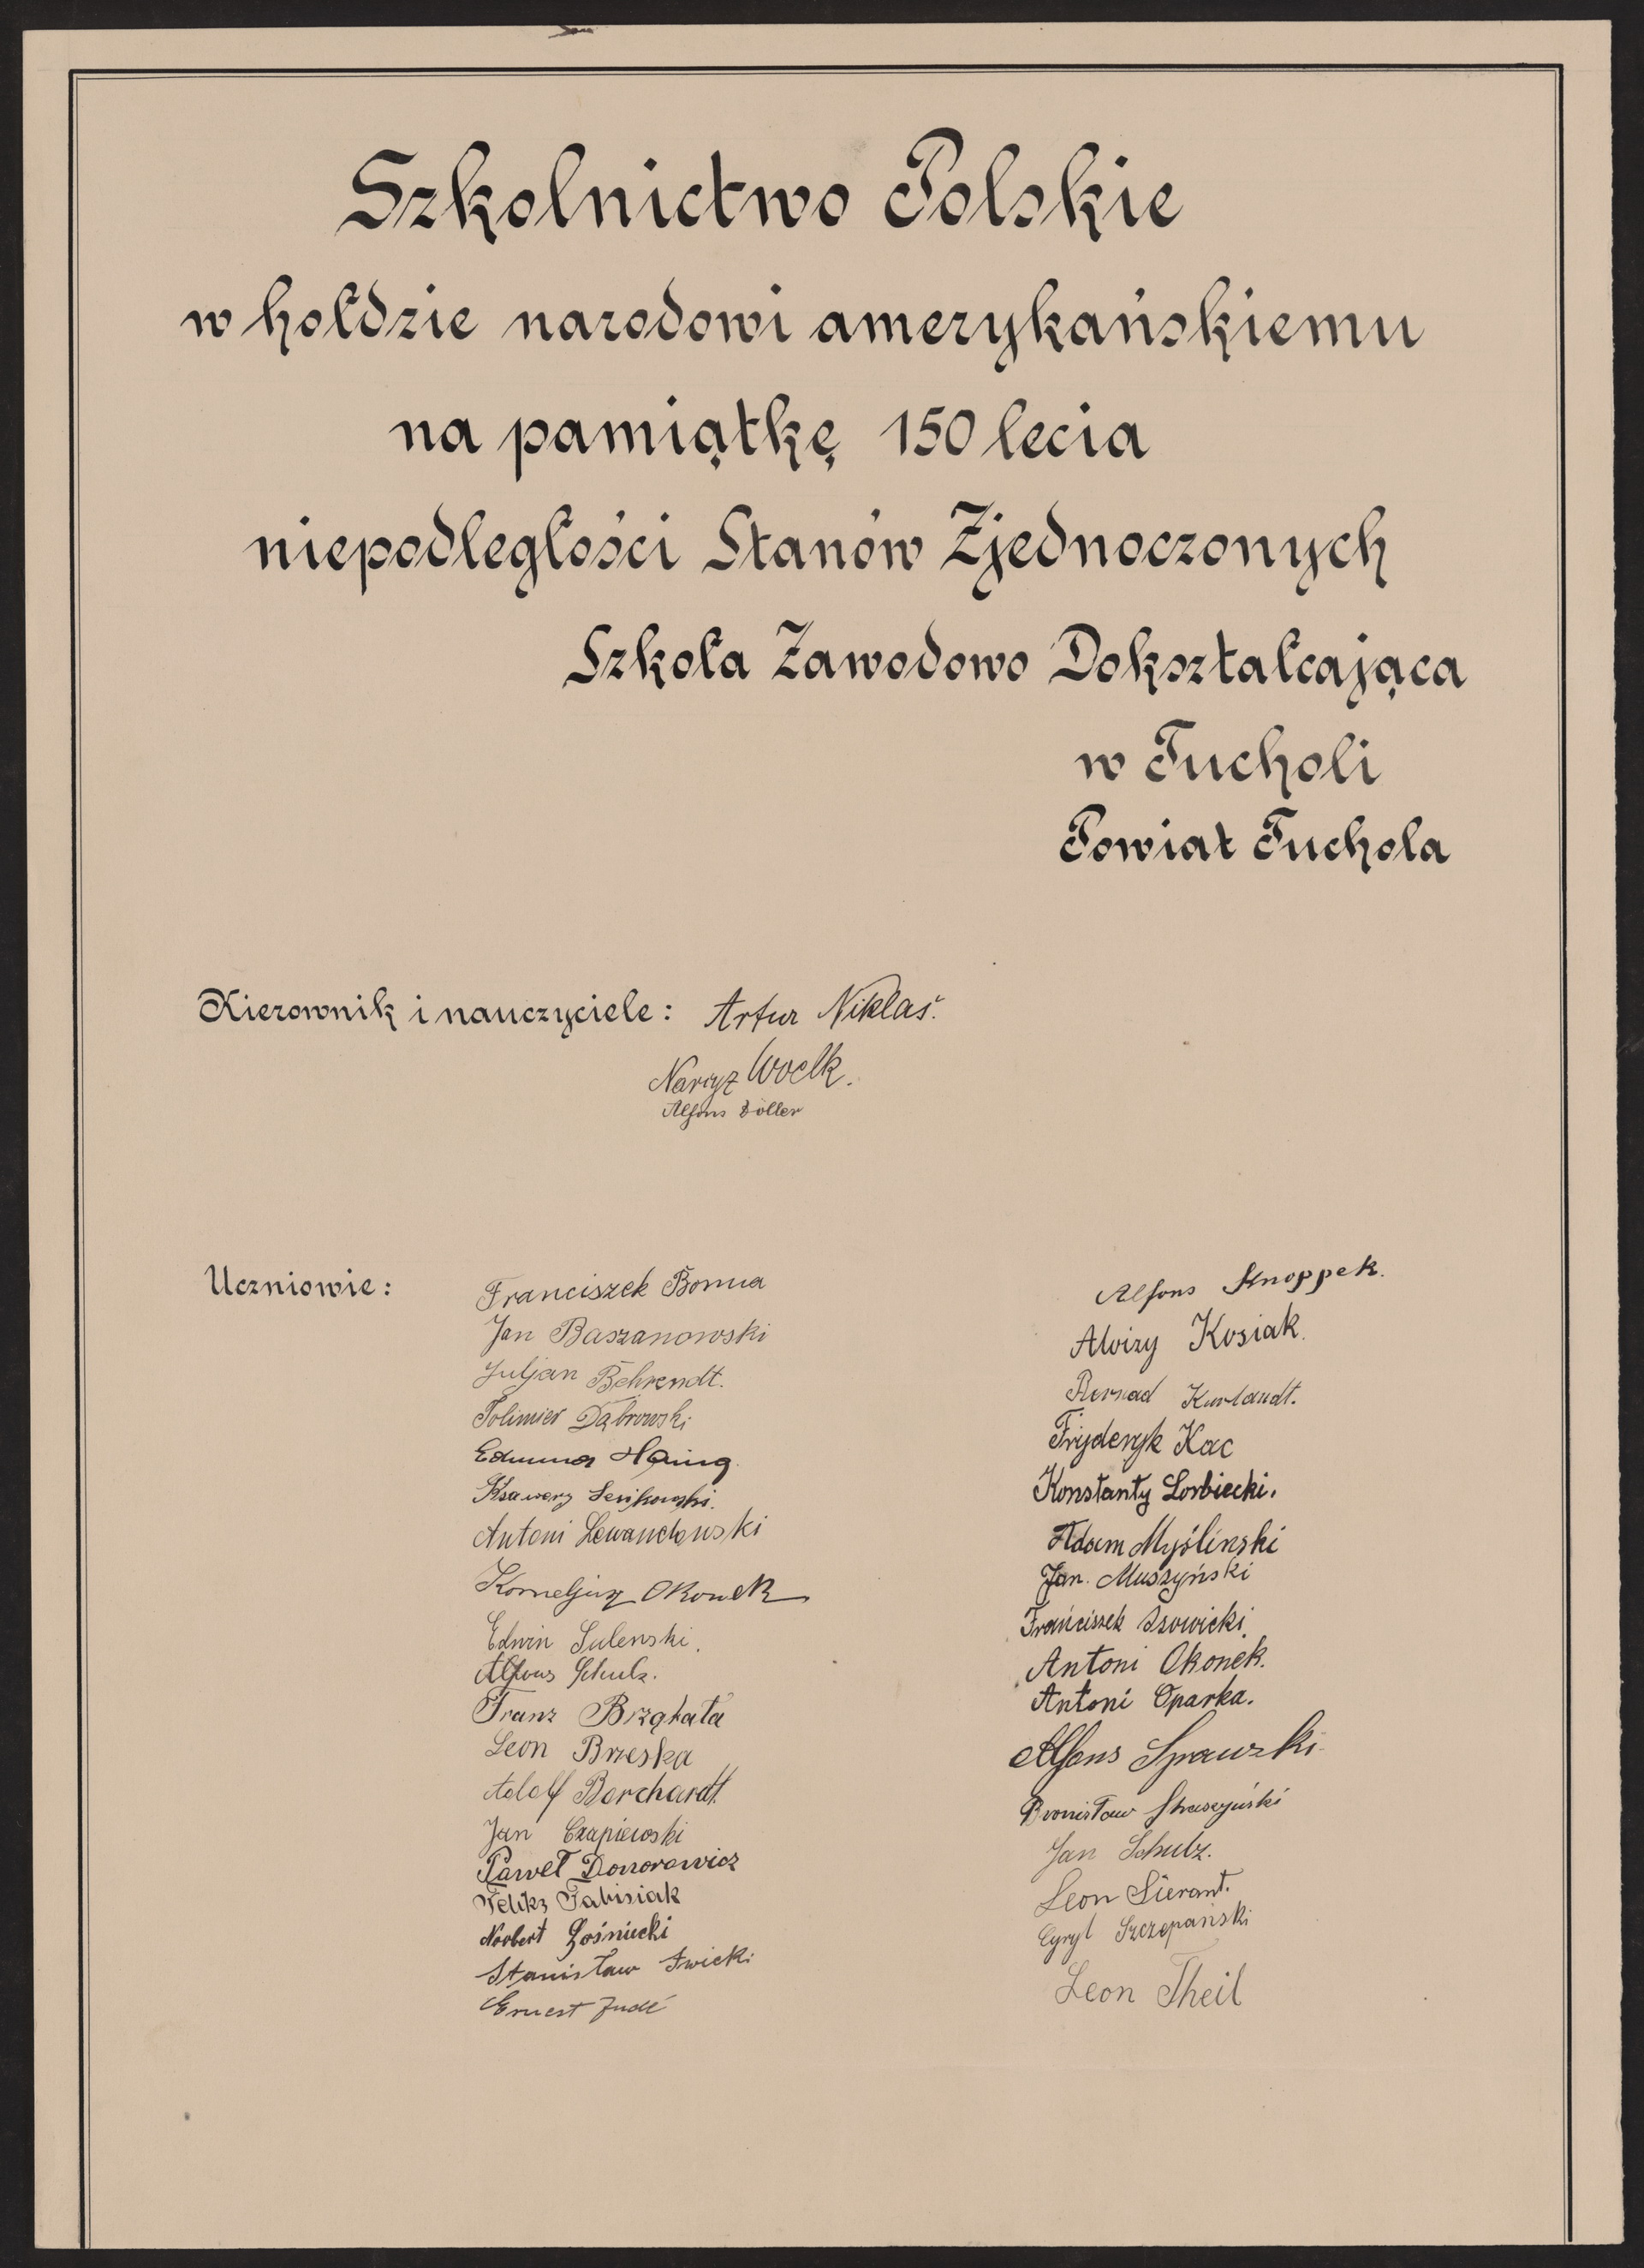 Szkolnictwo Polskie
w hołdzie narodowi amerykańskiemu
na pamiątkę 150 lecia
niepodległości Stanów Zjednoczonych
Szkoła Zawodowo Dokształcająca
w Tucholi
Powiat Tuchola
Kierownik i nauczyciele: Artur Niklas.
Narcyz Woelk.
Alfons Zöller
Uczniowie:
Franciszek Bonna
Jan Baszanowski
Juljan Behrendt.
Dąbrowski
Edmund
Ksawery
Antoni Lewandowski
Korneljusz Okonek
Edwin Sulenski.
Alfons Schulz.
Franz Brzękała
Leon Brzeska
Adolf Borchardt.
Jan Czapiewski
Paweł Donorowicz
Feliks Fabisiak
Norbert Gośniecki
Stanisław Iwicki
Ernest
Alfons Knoppek.
Aloizy Kosiak.
Bernad Kurlandt.
Fryderyk Kac
Konstanty Lorbiecki.
Adam Myślinski
Jan. Muszyński
Franciszek
Antoni Okonek.
Antoni Oparka.
Alfons
Bronisław
Jan Schulz.
Leon Sierant.
Cyryl Szczepański
Leon Theil